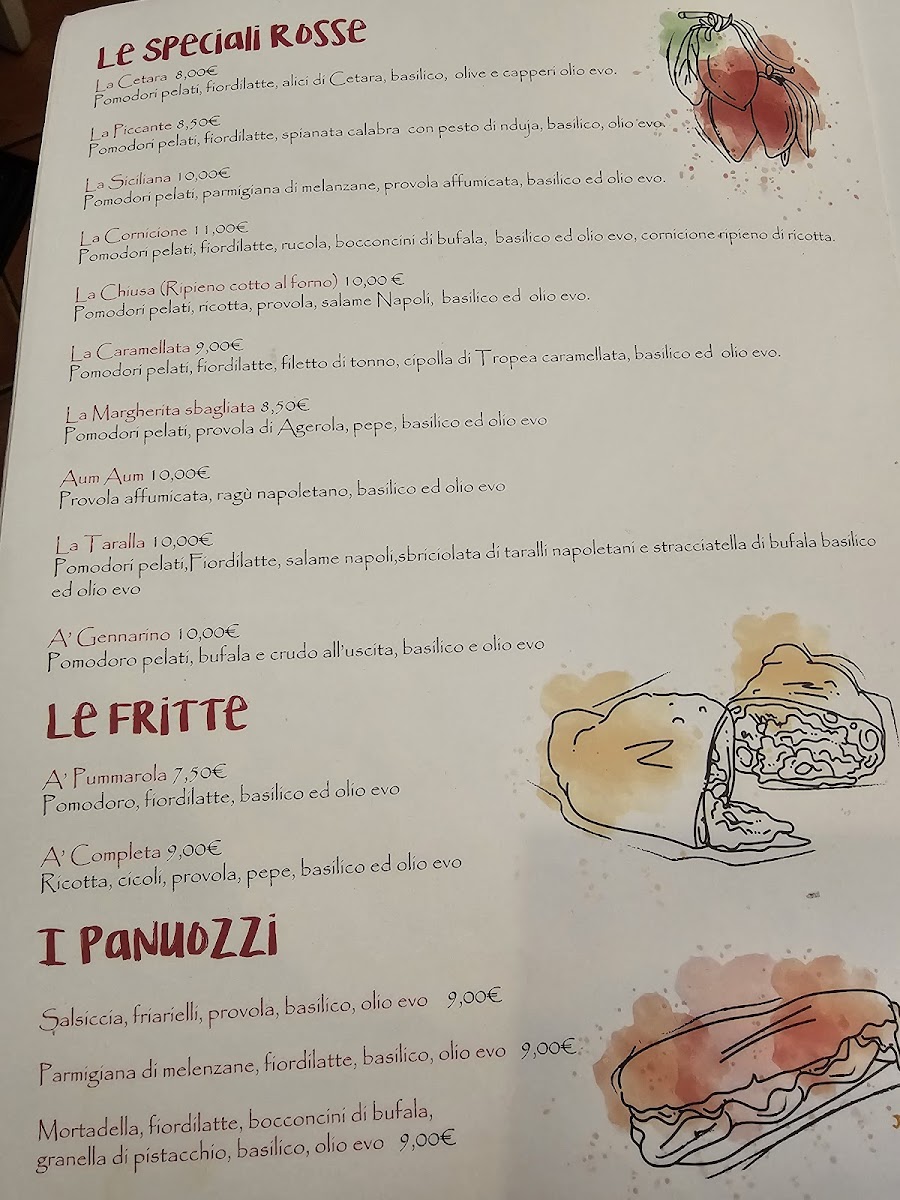 Le Speciali Rosse
La Cetara 8,00€
Pomodori pelati, fiordilatte, alici di Cetara, basilico, olive e capperi olio evo.
La Piccante 8,50€
Pomodori pelati, fiordilatte, spianata calabra con pesto di nduja, basilico, olio evo.
La Siciliana 10,00€
Pomodori pelati, parmigiana di melanzane, provola affumicata, basilico ed olio evo.
La Cornicione 11,00€
Pomodori pelati, fiordilatte, rucola, bocconcini di bufala, basilico ed olio evo, cornicione ripieno di ricotta.
La Chiusa (Ripieno cotto al forno) 10,00 €
Pomodori pelati, ricotta, provola, salame Napoli, basilico ed olio evo.
La Caramellata 9,00€
Pomodori pelati, fiordilatte, filetto di tonno, cipolla di Tropea caramellata, basilico ed olio evo.
La Margherita sbagliata 8,50€
Pomodori pelati, provola di Agerola, pepe, basilico ed olio evo
Aum Aum 10,00€
Provola affumicata, ragù napoletano, basilico ed olio evo
La Taralla 10,00€
Pomodori pelati,Fiordilatte, salame napoli,sbriciolata di taralli napoletani e stracciatella di bufala basilico
ed olio evo
A' Gennarino 10,00€
Pomodoro pelati, bufala e crudo all'uscita, basilico e olio evo
Le Fritte
A' Pummarola 7,50€
Pomodoro, fiordilatte, basilico ed olio evo
A' Completa 9,00€
Ricotta, cicoli, provola, pepe, basilico ed olio evo
I Panuozzi
Salsiccia, friarielli, provola, basilico, olio evo 9,00€
Parmigiana di melenzane, fiordilatte, basilico, olio evo 9,00€
Mortadella, fiordilatte, bocconcini di bufala,
granella di pistacchio, basilico, olio evo 9,00€